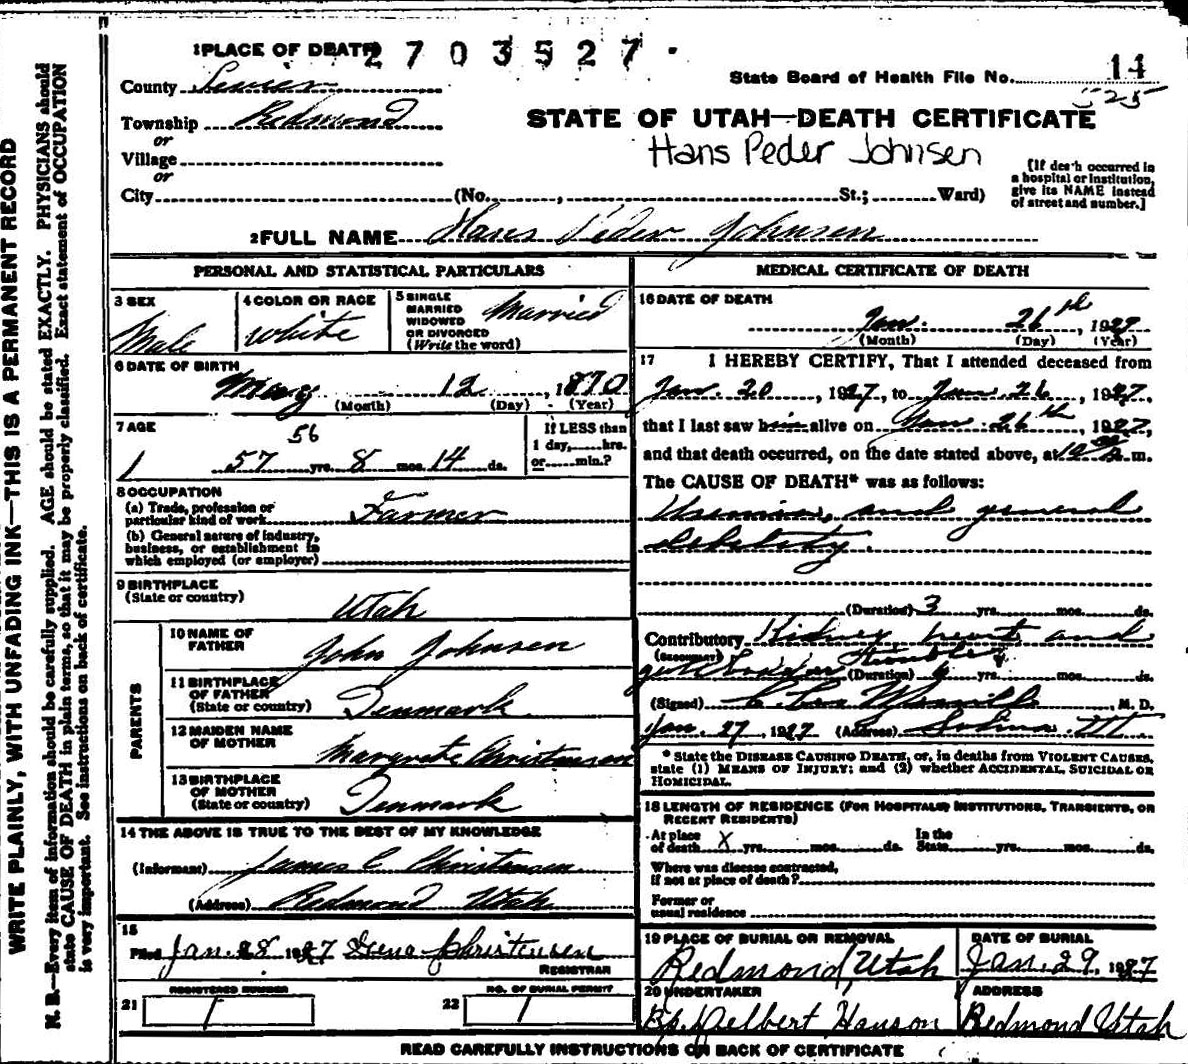 WRITE PLAINLY, WITH UNFADING INK—THIS IS A PERMANENT RECORD
N. B.—Every item of information should be carefully supplied. AGE should be stated EXACTLY. PHYSICIANS should
state CAUSE OF DEATH in plain terms, so that it may be properly classified. Exact statement of OCCUPATION
is very important. See instructions on back of certificate.
1 PLACE OF DEATH 2703527
State Board of Health File No. 14
525
County Sevier
Township Redmond
or
Village
or
City (No. , St.; Ward)
STATE OF UTAH—DEATH CERTIFICATE
Hans Peder Johnsen
[If death occurred in
a hospital or institution,
give its NAME instead
of street and number.]
2 FULL NAME Hans Peder Johnsen
PERSONAL AND STATISTICAL PARTICULARS
3 SEX
Male
4 COLOR OR RACE
White
5 SINGLE
MARRIED
WIDOWED
OR DIVORCED
(Write the word)
Married
6 DATE OF BIRTH
May 12, 1870
(Month) (Day) (Year)
7 AGE
56
57 yrs. 8 mos. 14 ds.
If LESS than
1 day, hrs.
or min.?
8 OCCUPATION
(a) Trade, profession or
particular kind of work Farmer
(b) General nature of industry,
business, or establishment in
which employed (or employer)
9 BIRTHPLACE
(State or country)
Utah
PARENTS
10 NAME OF
FATHER
John Johnsen
11 BIRTHPLACE
OF FATHER
(State or country)
Denmark
12 MAIDEN NAME
OF MOTHER
Margrete Christensen
13 BIRTHPLACE
OF MOTHER
(State or country)
Denmark
14 THE ABOVE IS TRUE TO THE BEST OF MY KNOWLEDGE
(Informant) James C Christensen
(Address) Redmond Utah
15
Filed Jan. 28 1927 Christensen
REGISTRAR
21 REGISTERED NUMBER
1
22 NO. OF BURIAL PERMIT
1
MEDICAL CERTIFICATE OF DEATH
16 DATE OF DEATH
Jan. 26th, 1927
(Month) (Day) (Year)
17 I HEREBY CERTIFY, That I attended deceased from
Jan. 20, 1927, to Jan. 26, 1927,
that I last saw him alive on Jan. 26th, 1927,
and that death occurred, on the date stated above, at m.
The CAUSE OF DEATH* was as follows:
Uremia, and general
debility.
(Duration) 3 yrs. mos. ds.
Contributory Kidney, heart and
(SECONDARY) trouble
(Duration) yrs. mos. ds.
(Signed) M. D.
Jan. 27, 1927 (Address) Salina. Ut
* State the DISEASE CAUSING DEATH, or, in deaths from VIOLENT CAUSES,
state (1) MEANS OF INJURY; and (2) whether ACCIDENTAL, SUICIDAL OR
HOMICIDAL.
18 LENGTH OF RESIDENCE (FOR HOSPITALS, INSTITUTIONS, TRANSIENTS, OR
RECENT RESIDENTS)
At place
of death X yrs. mos. ds.
In the
State yrs. mos. ds.
Where was disease contracted,
if not at place of death?
Former or
usual residence
19 PLACE OF BURIAL OR REMOVAL
Redmond, Utah
DATE OF BURIAL
Jan. 29, 1927
20 UNDERTAKER
Bp. Delbert Hanson
ADDRESS
Redmond Utah
READ CAREFULLY INSTRUCTIONS ON BACK OF CERTIFICATE